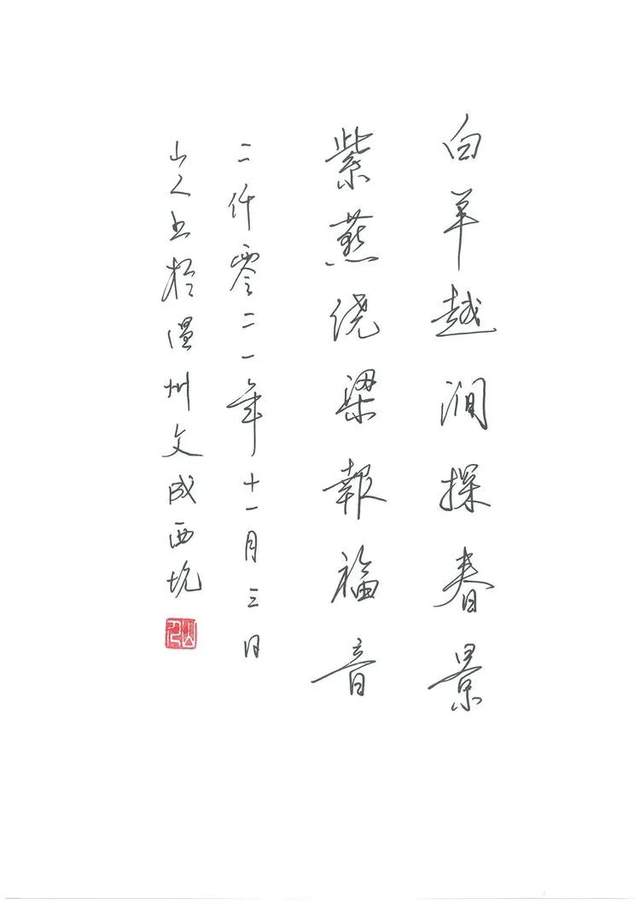 白羊越涧探春景
紫燕绕梁報福音
二仟零二一年十一月三日
山人书於温州文成西坑
山人